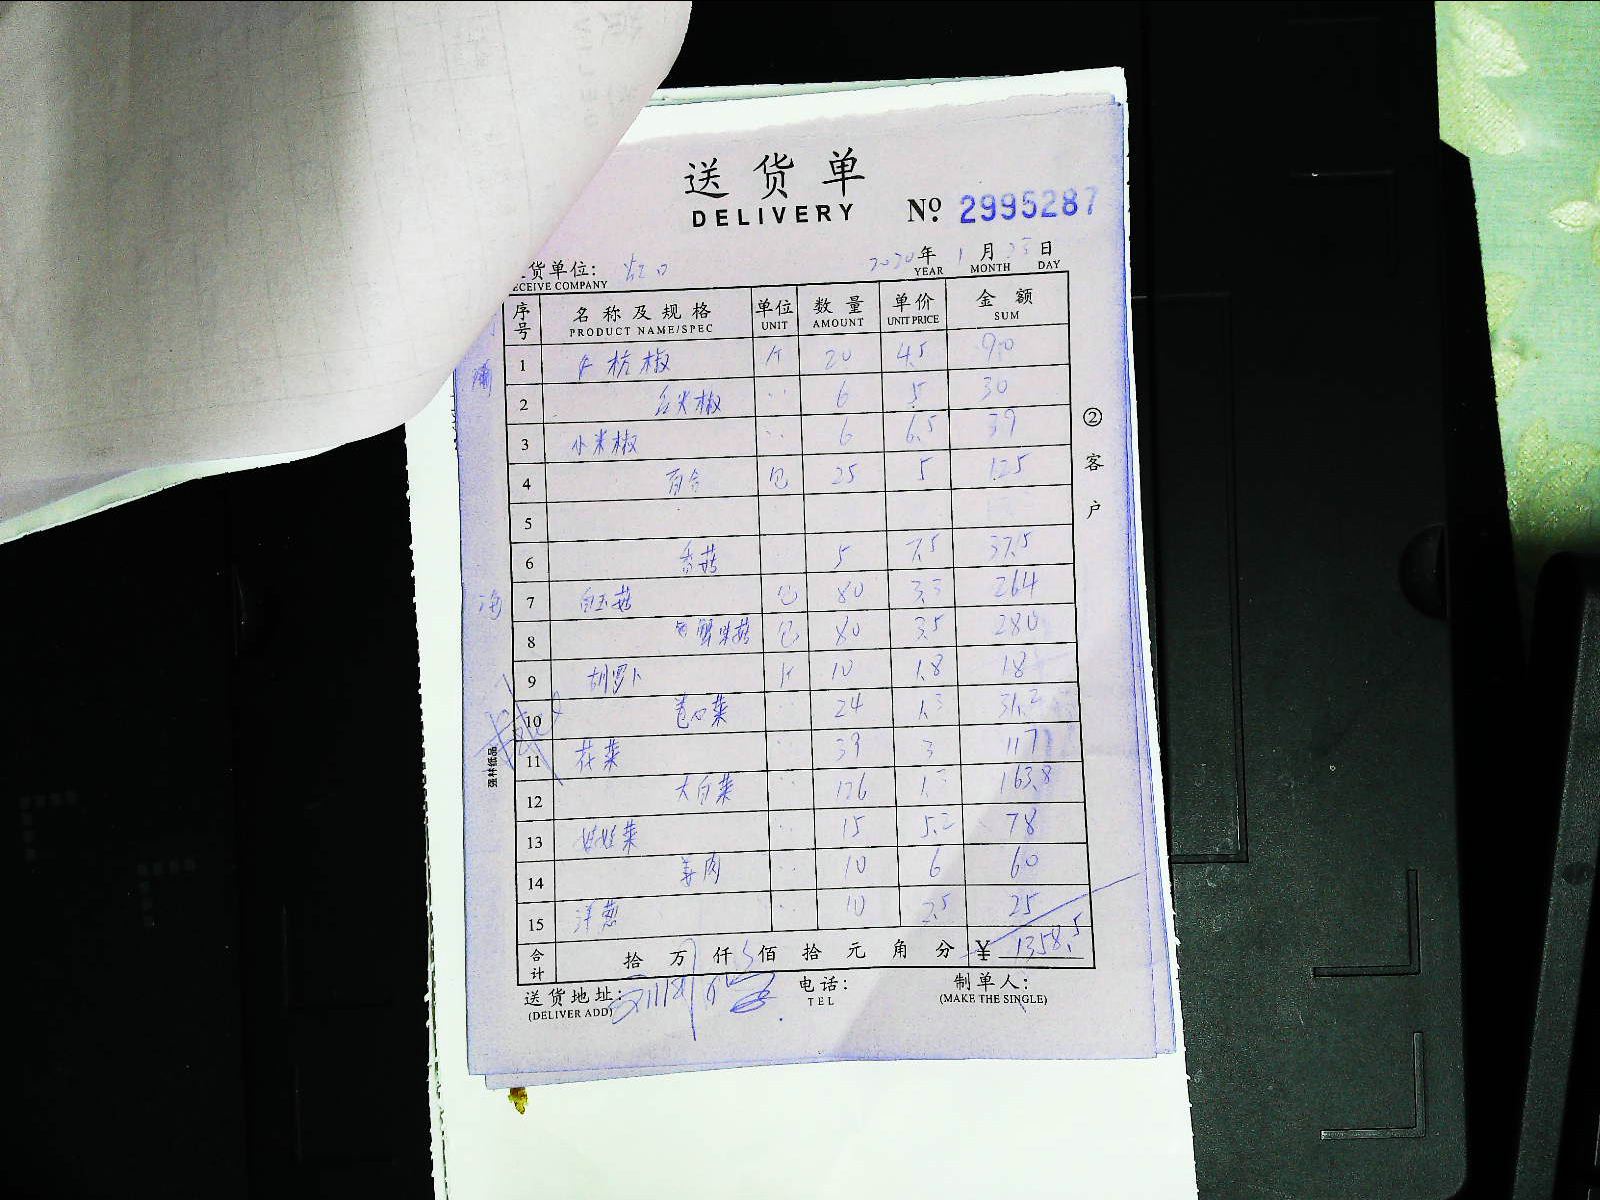 送货单
DELIVERY
No. 2995287
货单位: 虹口
2020年 1月 日
ECEIVE COMPANY YEAR MONTH DAY
序号 名称及规格 单位 数量 单价 金额
PRODUCT NAME/SPEC UNIT AMOUNT UNIT PRICE SUM
1 杭椒 斤 20 4.5 90
2 尖椒 〃 6 5 30
3 小米椒 〃 6 6.5 39
4 百合 包 25 5 125
5
6 香菇 5 7.5 37.5
7 白玉菇 包 80 3.3 264
8 蟹味菇 包 80 3.5 280
9 胡萝卜 斤 10 1.8 18
10 卷心菜 〃 24 1.3 31.2
11 花菜 〃 39 3 117
12 大白菜 〃 126 1.3 163.8
13 娃娃菜 〃 15 5.2 78
14 姜肉 〃 10 6 60
15 洋葱 〃 10 2.5 25
合计 拾万仟佰拾元角分 ¥ 1358.5
送货地址: 电话: 制单人:
(DELIVER ADD) TEL (MAKE THE SINGLE)
②客户
海
强林纸品